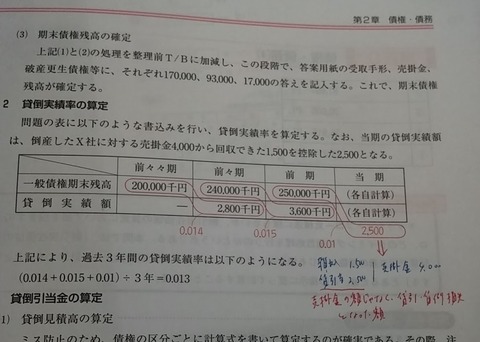 第2章 債権・債務
(3) 期末債権残高の確定
上記(1)と(2)の処理を整理前T/Bに加減し、この段階で、答案用紙の受取手形、売掛金、
破産更生債権等に、それぞれ170,000、93,000、17,000の答えを記入する。これで、期末債権
残高が確定する。
2 貸倒実績率の算定
問題の表に以下のような書込みを行い、貸倒実績率を算定する。なお、当期の貸倒実績額
は、倒産したX社に対する売掛金4,000から回収できた1,500を控除した2,500となる。
前々々期 前々期 前期 当期
一般債権期末残高 200,000千円 240,000千円 250,000千円 (各自計算)
貸倒実績額 — 2,800千円 3,600千円 (各自計算)
0.014 0.015 0.01 2,500
上記により、過去3年間の貸倒実績率は以下のようになる。
(0.014+0.015+0.01)÷3年=0.013
1,500 売掛金 4,000
2,500
売掛金の額じゃなく、
となった額
貸倒引当金の算定
1) 貸倒見積高の算定
ミス防止のため、債権の区分ごとに計算式を書いて算定するのが確実である。その際、注